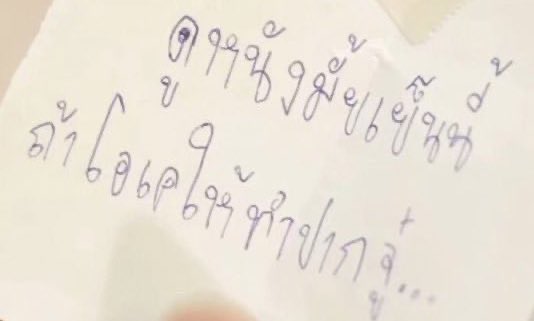 ดูหนังมั้ยเย็นนี้
ถ้าโอเคให้ทำปากจู๋...